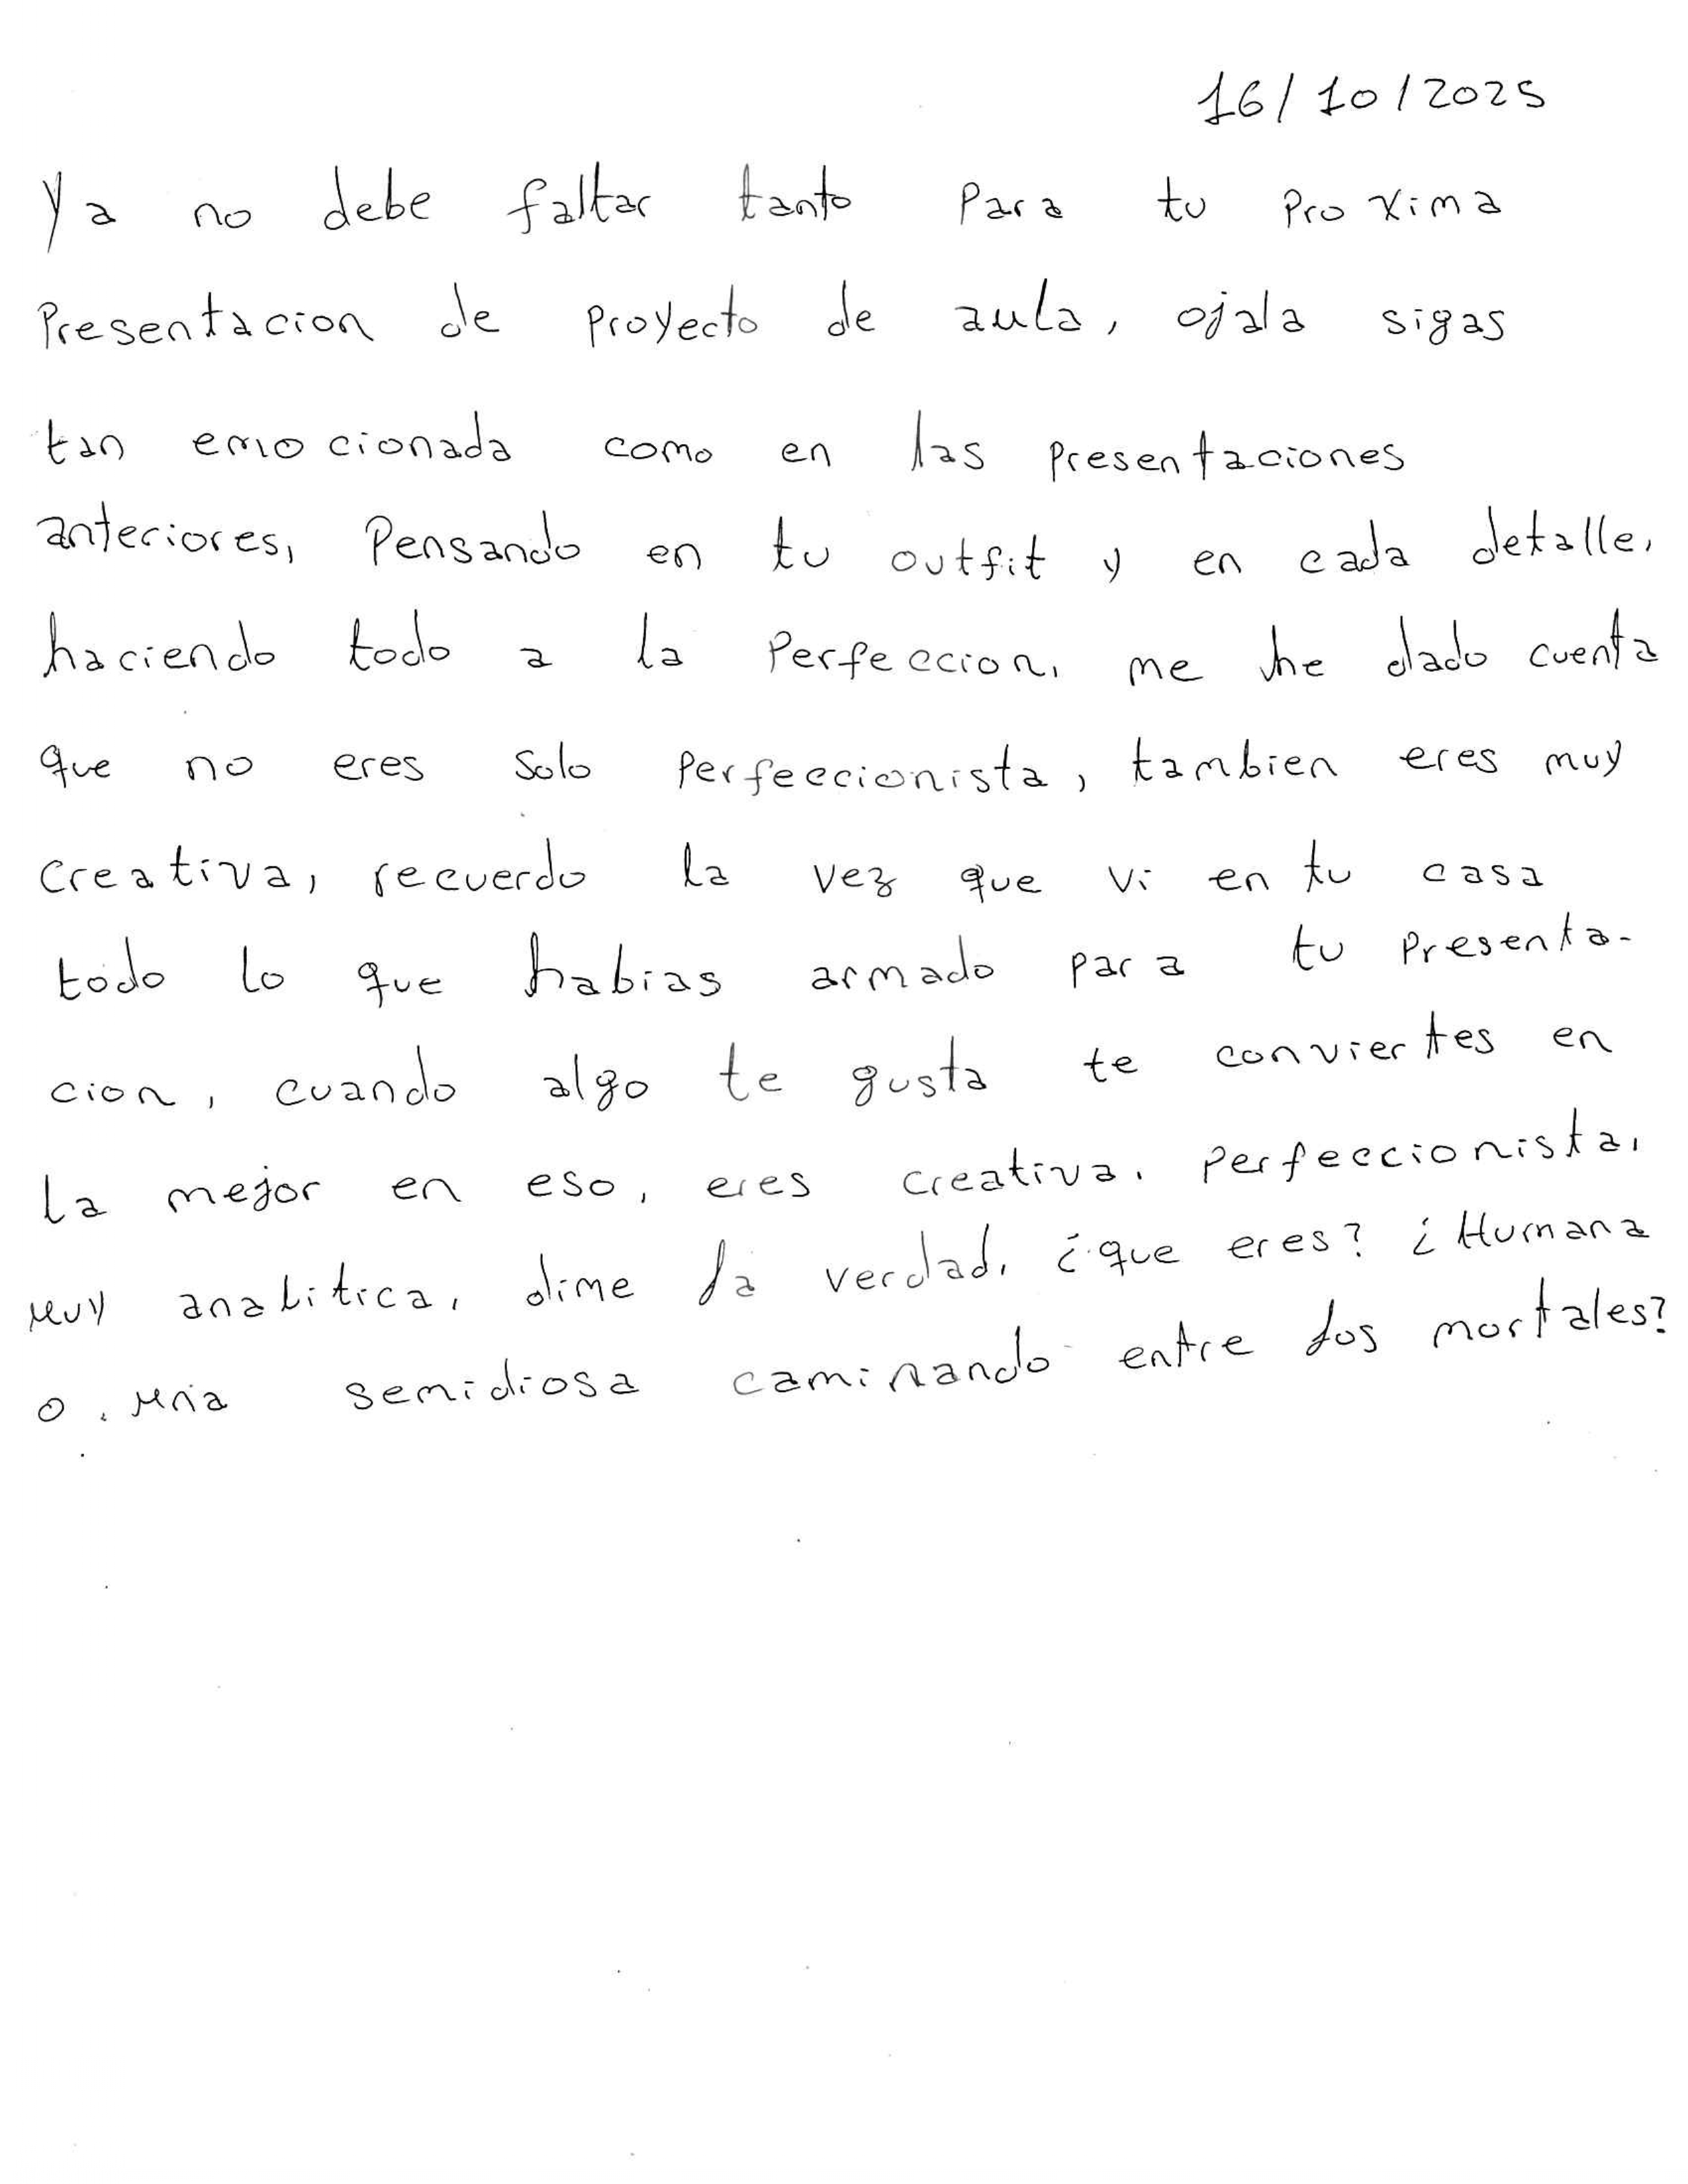 16/10/2025
Ya no debe faltar tanto para tu proxima
Presentacion de proyecto de aula, ojala sigas
tan emocionada como en las presentaciones
anteriores, Pensando en tu outfit y en cada detalle,
haciendo todo a la Perfeccion, me he dado cuenta
que no eres solo perfeccionista, tambien eres muy
creativa, recuerdo la vez que vi en tu casa
todo lo que habias armado para tu presenta-
cion, cuando algo te gusta te conviertes en
la mejor en eso, eres creativa, perfeccionista,
muy analitica, dime la verdad, ¿que eres? ¿Humana
o una semidiosa caminando entre los mortales?